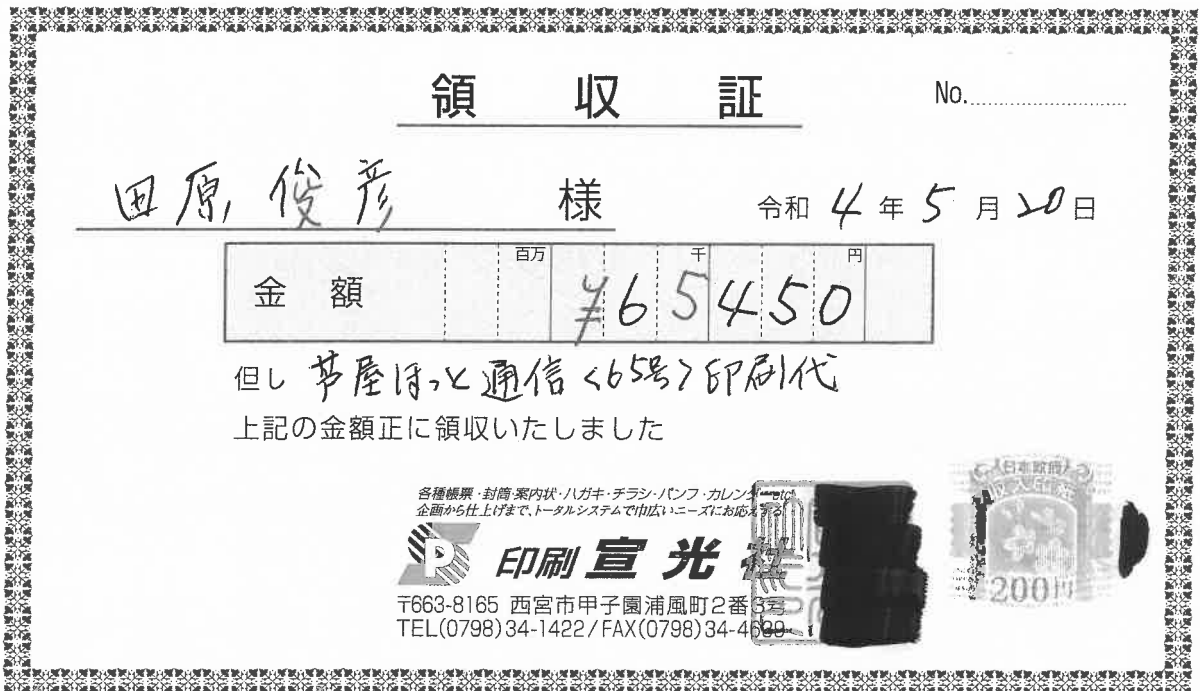 領 収 証
No.
田原 俊彦 様
令和 4 年 5 月 20 日
金 額 百万 千 円
¥65450
但し 芦屋ほっと通信<65号>印刷代
上記の金額正に領収いたしました
各種帳票・封筒・案内状・ハガキ・チラシ・パンフ・カレンダーetc
企画から仕上げまで、トータルシステムで巾広いニーズにお応えする
P 印刷 宣光社
〒663-8165 西宮市甲子園浦風町2番3号
TEL(0798)34-1422/FAX(0798)34-4639
日本政府
収入印紙
200円